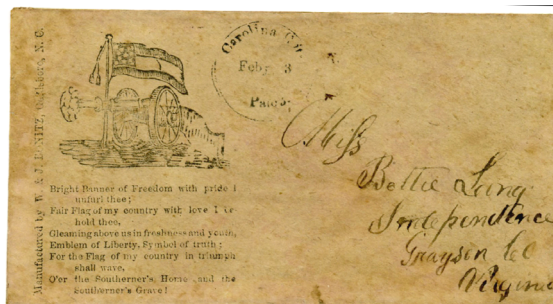 Manufactured by W. & J. BONITZ, Goldsboro, N. C.
Carolina City
Feby 3
Paid 5
Bright Banner of Freedom with pride I
unfurl thee;
Fair Flag of my country with love I
hold thee,
Gleaming above us in freshness and youth,
Emblem of Liberty, Symbol of truth;
For the Flag of my country in triumph
shall wave,
O'er the Southerner's Home and the
Southerner's Grave!
Miss
Bettie Long
Independence
Grayson Co
Virginia